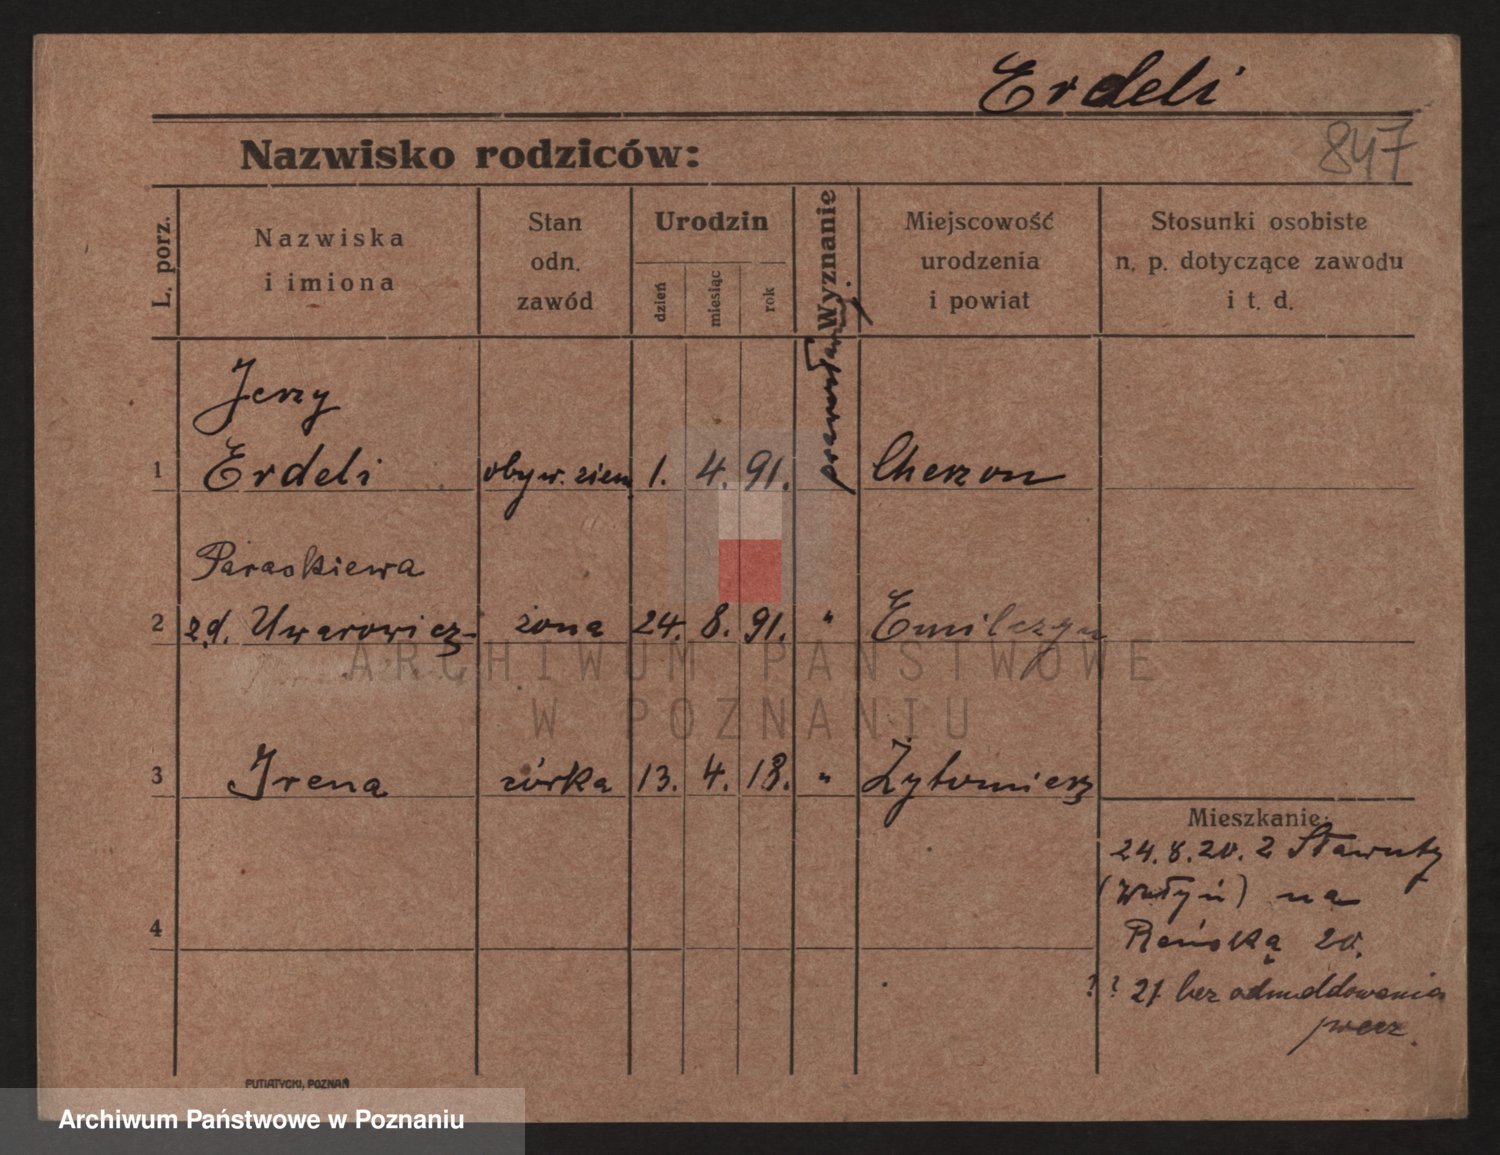 Erdeli
847
Nazwisko rodziców:
L. porz.
Nazwiska
i imiona
Stan
odn.
zawód
Urodzin
dzień
miesiąc
rok
Wyznanie
Miejscowość
urodzenia
i powiat
Stosunki osobiste
n. p. dotyczące zawodu
i t. d.
Jerzy
1 Erdeli obyw. ziem 1. 4. 91. prawosławny Cherzon
Paraskiewa
2 z d. Uwarowicz żona 24. 8. 91. " Emilczyn
3 Irena córka 13. 4. 18. " Żytomierz
4
Mieszkanie:
24.8.20. z Sławuty
(Wołyń) na
Reńską 20.
? ? 21 bez odmeldowania
PUTIATYCKI, POZNAŃ
ARCHIWUM PAŃSTWOWE
W POZNANIU
Archiwum Państwowe w Poznaniu